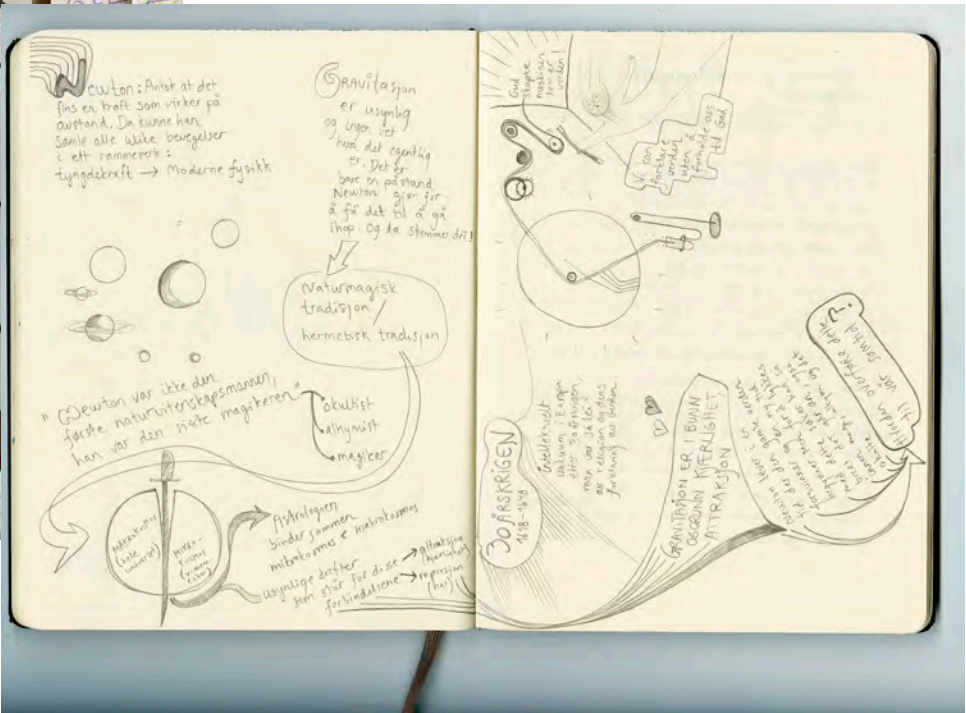 Newton: Antok at det
fins en kraft som virker på
avstand. Da kunne han
samle alle ulike bevegelser
i ett rammeverk:
tyngdekraft → Moderne fysikk
GRAVITASJON
er usynlig
og ingen vet
hva det egentlig
er. Det er
bare en påstand
Newton gjør for
å få det til å gå
ihop. Og da stemmer det!
Naturmagisk
tradisjon /
hermetisk tradisjon
"Newton var ikke den
første naturvitenskapsmannen,
han var den siste magikeren"
okultist
alkymist
magiker
MAKROKOSMOS
(hele
universet)
MIKRO-
KOSMOS
Astrologien
binder sammen
mikrokosmos & makrokosmos
usynlige krefter
som står for disse → attraksjon
(kjærlighet)
forbindelsene → repulsjon
(hat)
Gud
skapte
maskinen
som er
verden!
Vi kan
forklare
verden
uten å
forholde oss
til Gud
30 ÅRSKRIGEN
1618-1648
Intellektuelt
vakuum i Europa
etter 30 årskrigen,
man var så lei
av religion og dens
forklaring av verden.
GRAVITASJON ER I BUNN
OG GRUNN KJÆRLIGHET,
ATTRAKSJON
Newton lever i en
tid der den gamle verden
forsvinner og en ny
Hvordan overføre dette
til vår samtid?